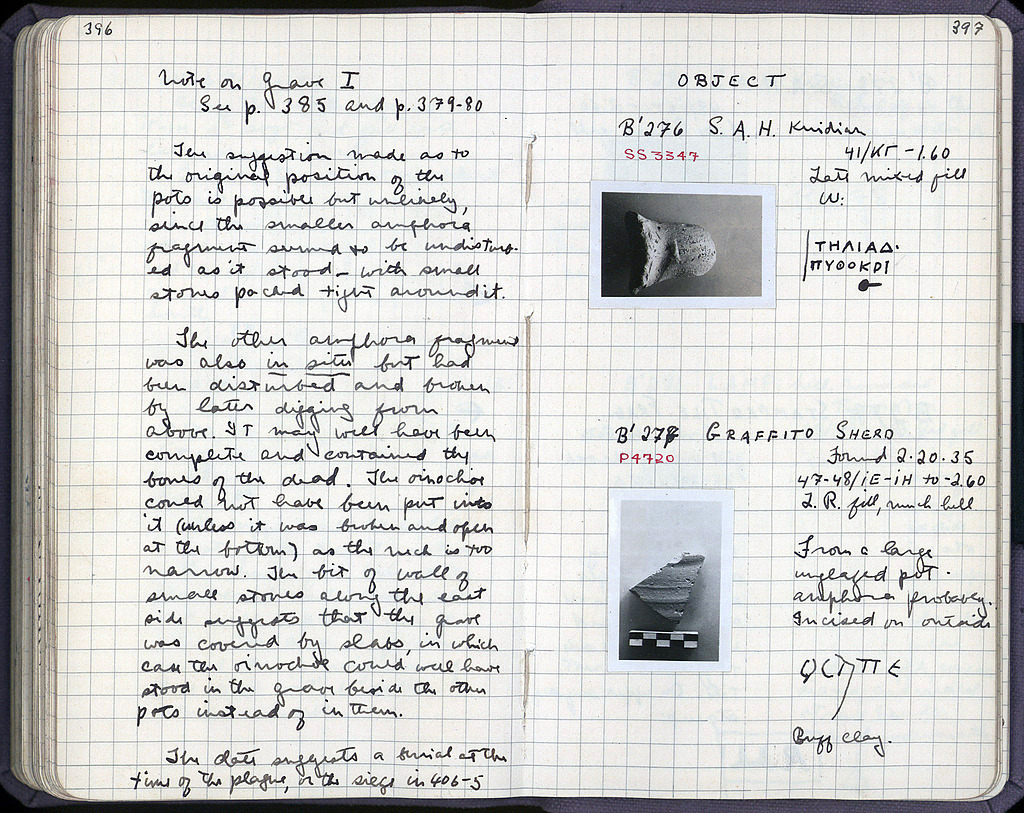 396
Note on Grave I
See p. 385 and p. 379-80
The suggestion made as to
the original position of the
pots is possible but unlikely,
since the smaller amphora
fragment seemed to be undisturb-
ed as it stood – with small
stones packed tight around it.
The other amphora fragment
was also in situ but had
been disturbed and broken
by later digging from
above. It may well have been
complete and contained the
bones of the dead. The oinochoe
could not have been put into
it (unless it was broken and open
at the bottom) as the neck is too
narrow. The bit of wall of
small stones along the east
side suggests that the grave
was covered by slabs, in which
case the oinochoe could well have
stood in the grave beside the other
pots instead of in them.
The date suggests a burial at the
time of the plague, or the siege in 406-5
397
OBJECT
B'276 S. A. H. Knidian
SS 3347
41/ΚΓ -1.60
Late mixed fill
W:
ΤΗΛΙΑΔ·
ΠΥΘΟΚΡΙ
B'278 GRAFFITO SHERD
P4720
Found 2·20·35
47-48/ΙΕ-ΙΗ to -2.60
L. R. fill, much hell
From a large
unglazed pot·
amphora probably.
Incised on outside
Buff clay.